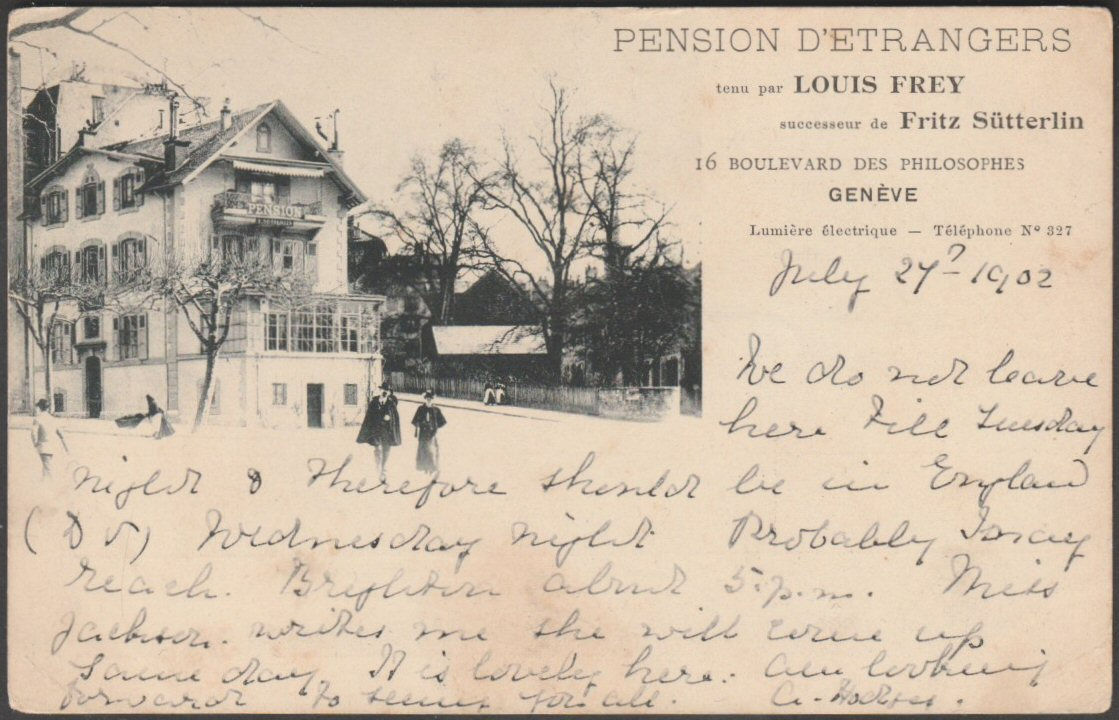 PENSION D'ETRANGERS
tenu par LOUIS FREY
successeur de Fritz Sütterlin
16 BOULEVARD DES PHILOSOPHES
GENÈVE
Lumière électrique — Téléphone Nº 327
PENSION
July 27 1902
We do not leave
here till Tuesday
night & therefore should be in England
(D V) Wednesday night Probably I may
reach. Brighton about 5. p.m. Miss
Jackson. writes me she will come up
same day It is lovely here. am looking
forward to seeing you all.